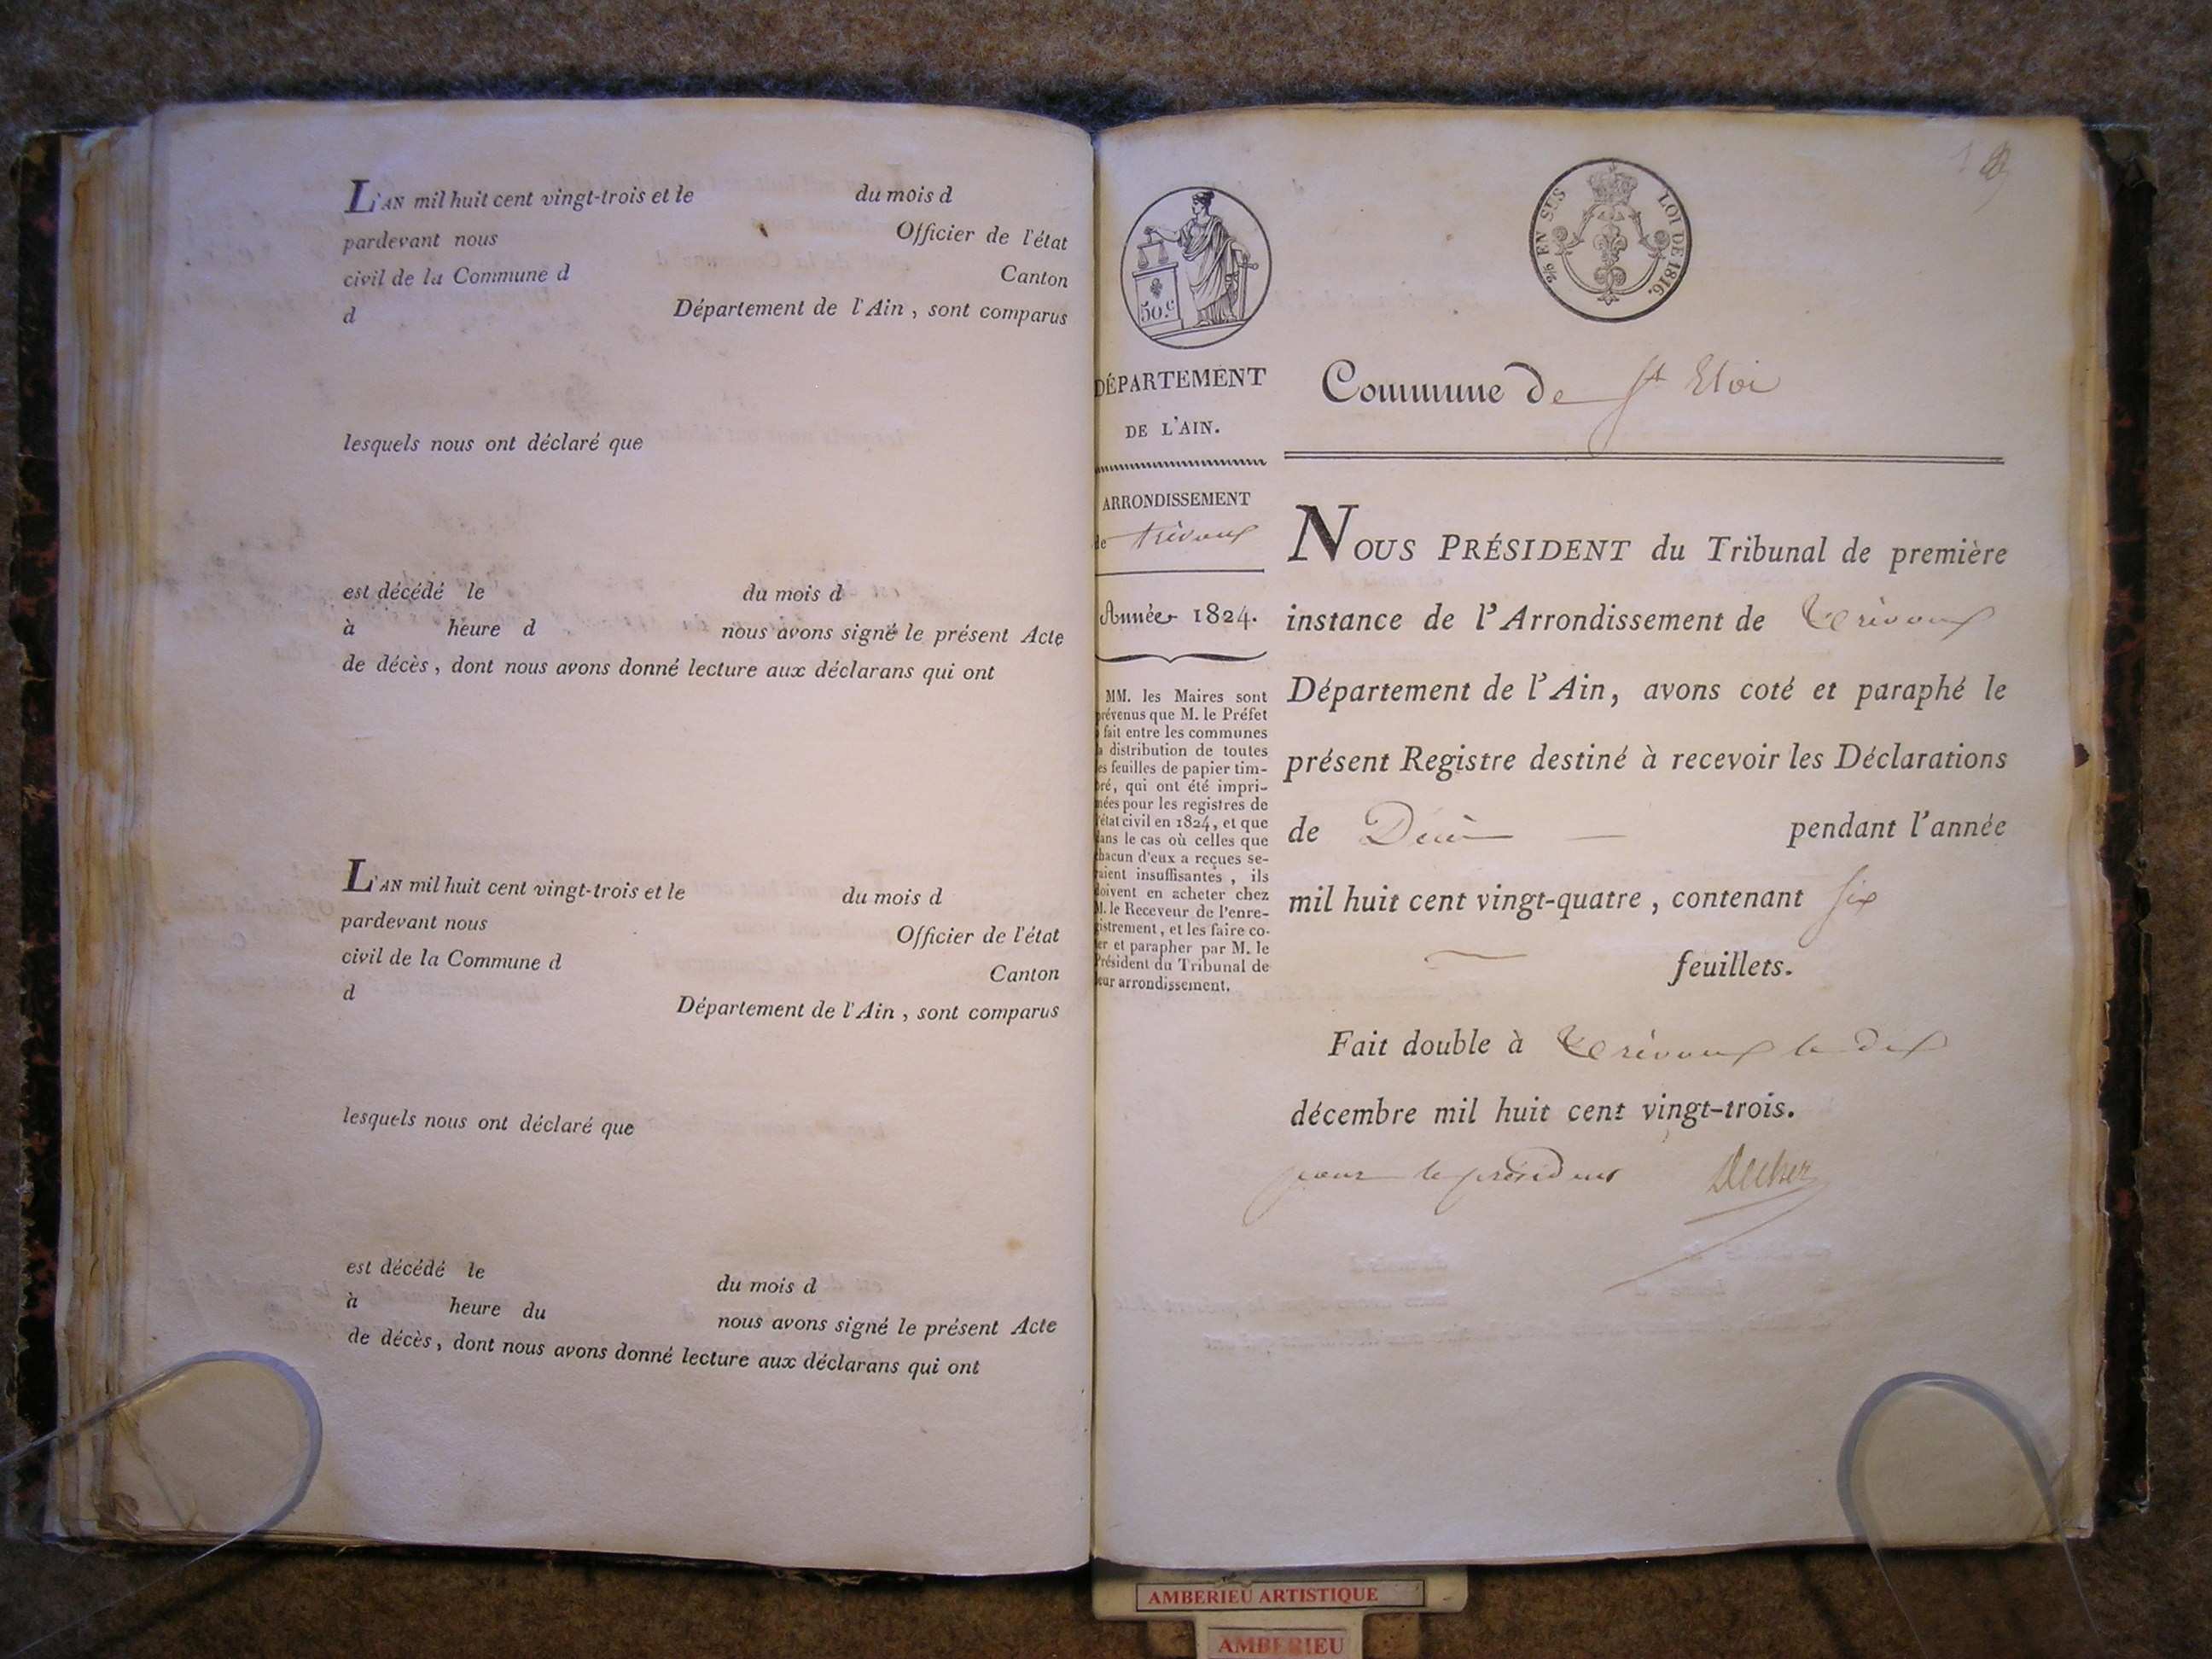 L'AN mil huit cent vingt-trois et le du mois d
pardevant nous Officier de l'état
civil de la Commune d Canton
d Département de l'Ain, sont comparus
lesquels nous ont déclaré que
est décédé le du mois d
à heure d nous avons signé le présent Acte
de décès, dont nous avons donné lecture aux déclarans qui ont
L'AN mil huit cent vingt-trois et le du mois d
pardevant nous Officier de l'état
civil de la Commune d Canton
d Département de l'Ain, sont comparus
lesquels nous ont déclaré que
est décédé le du mois d
à heure du nous avons signé le présent Acte
de décès, dont nous avons donné lecture aux déclarans qui ont
50.c
DÉPARTEMENT
DE L'AIN.
ARRONDISSEMENT
de trévoux
Année 1824.
MM. les Maires sont
prévenus que M. le Préfet
a fait entre les communes
la distribution de toutes
les feuilles de papier tim-
bré, qui ont été impri-
mées pour les registres de
l'état civil en 1824, et que
dans le cas où celles que
chacun d'eux a reçues se-
raient insuffisantes, ils
doivent en acheter chez
M. le Receveur de l'enre-
gistrement, et les faire co-
ter et parapher par M. le
Président du Tribunal de
leur arrondissement.
EN SUS LOI DE 1816.
Commune de St Eloi
NOUS PRÉSIDENT du Tribunal de première
instance de l'Arrondissement de Trévoux
Département de l'Ain, avons coté et paraphé le
présent Registre destiné à recevoir les Déclarations
de Décès pendant l'année
mil huit cent vingt-quatre, contenant six
feuillets.
Fait double à Trévoux le dix
décembre mil huit cent vingt-trois.
pour le président
AMBERIEU ARTISTIQUE
AMBERIEU